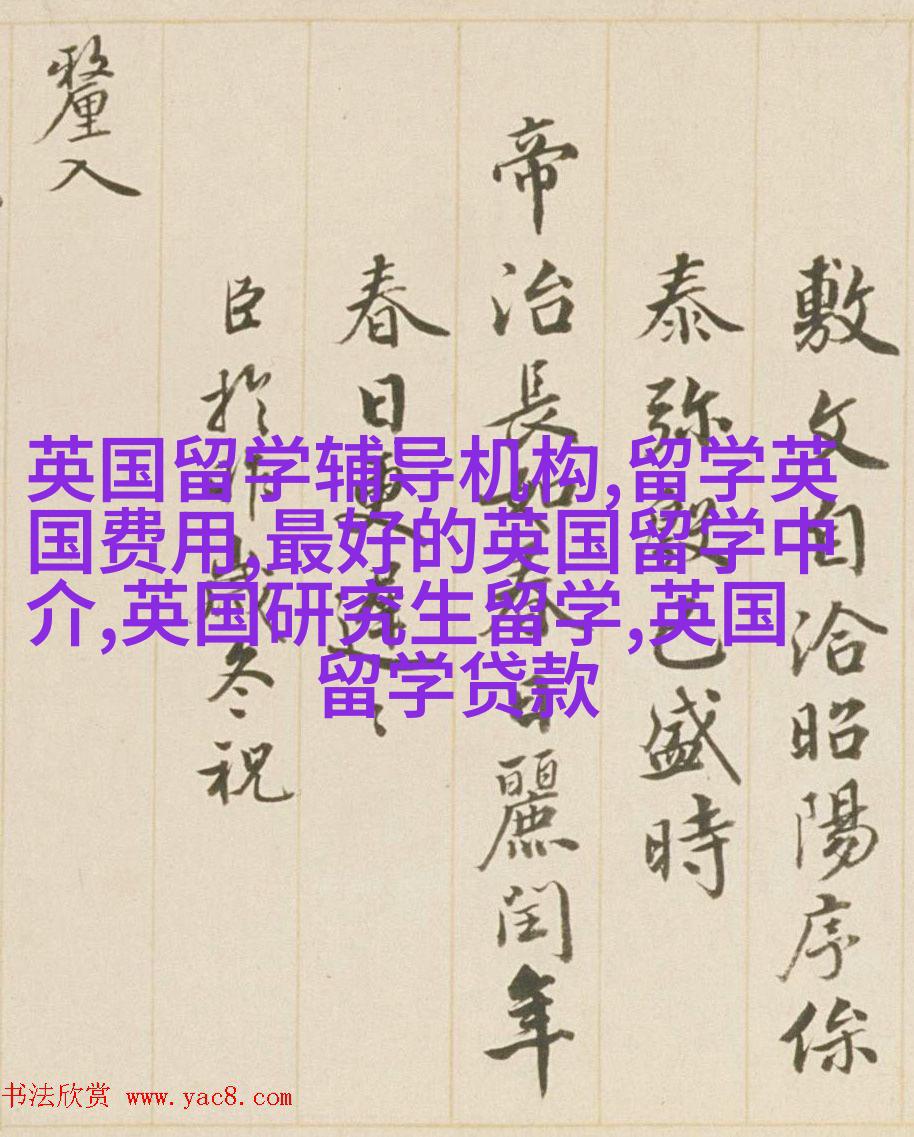 敷文自洽昭陽序
泰弥殷已盛時
帝治長如春日麗閏年
春日更遲〻
臣於昨歲冬祝
釐入
英国留学辅导机构,留学英
国费用,最好的英国留学中
介,英国研究生留学,英国
留学贷款
书法欣赏 www.yac8.com